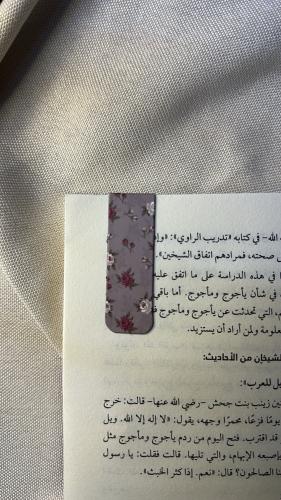 الله- في كتابه «تدريب الراوي»:
صحته، فمرادهم اتفاق الشيخين».
في هذه الدراسة على ما اتفق عليه
في شأن يأجوج ومأجوج. أما باقي
التي تحدثت عن يأجوج ومأجوج
ولمن أراد أن يستزيد.
الشيخان من الأحاديث:
للعرب»:
زينب بنت جحش -رضي الله عنها- قالت: خرج
يومًا فزعًا، محمرًا وجهه، يقول: «لا إله إلا الله. ويل
قد اقترب. فتح اليوم من ردم يأجوج ومأجوج مثل
بإصبعه الإبهام، والتي تليها. قالت فقلت: يا رسول
الصالحون؟ قال: «نعم. إذا كثر الخبث».